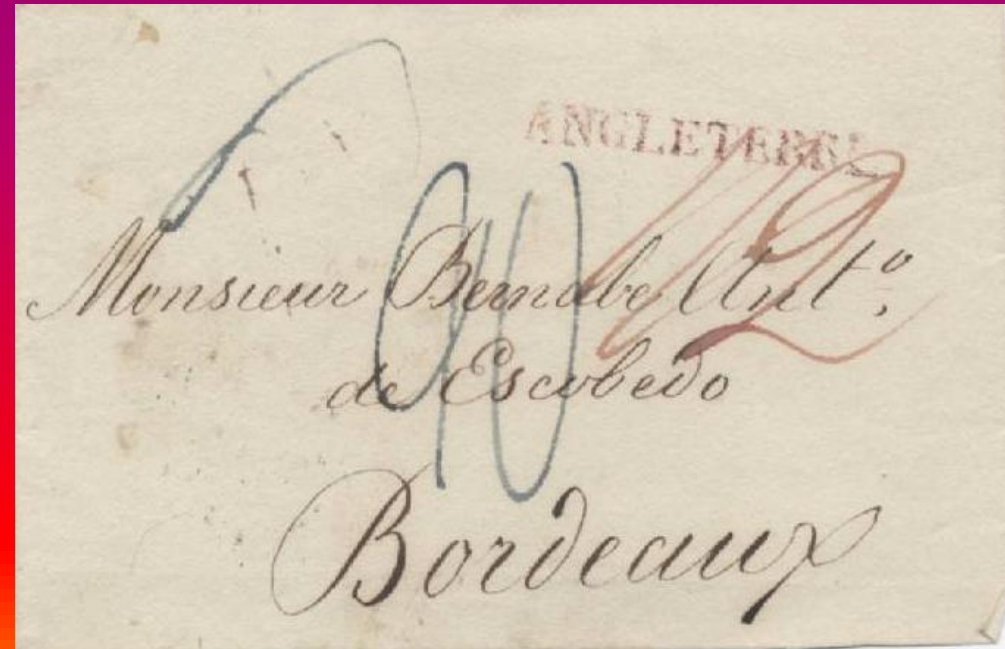 ANGLETERRE
Monsieur Bernabe Ant.º
de Escobedo
Bordeaux